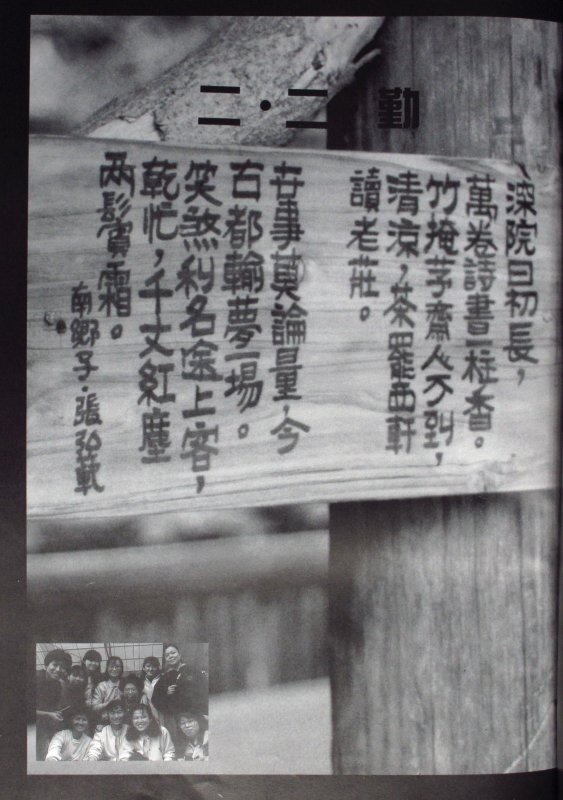 二・二 勤
深院日初長，
萬卷詩書一柱香。
竹掩茅齋人不到，
清涼，茶罷西軒
讀老莊。
世事莫論量，今
古都輸夢一場。
笑煞利名途上客，
乾忙，千丈紅塵
兩鬢霜。
南鄉子・張弘範